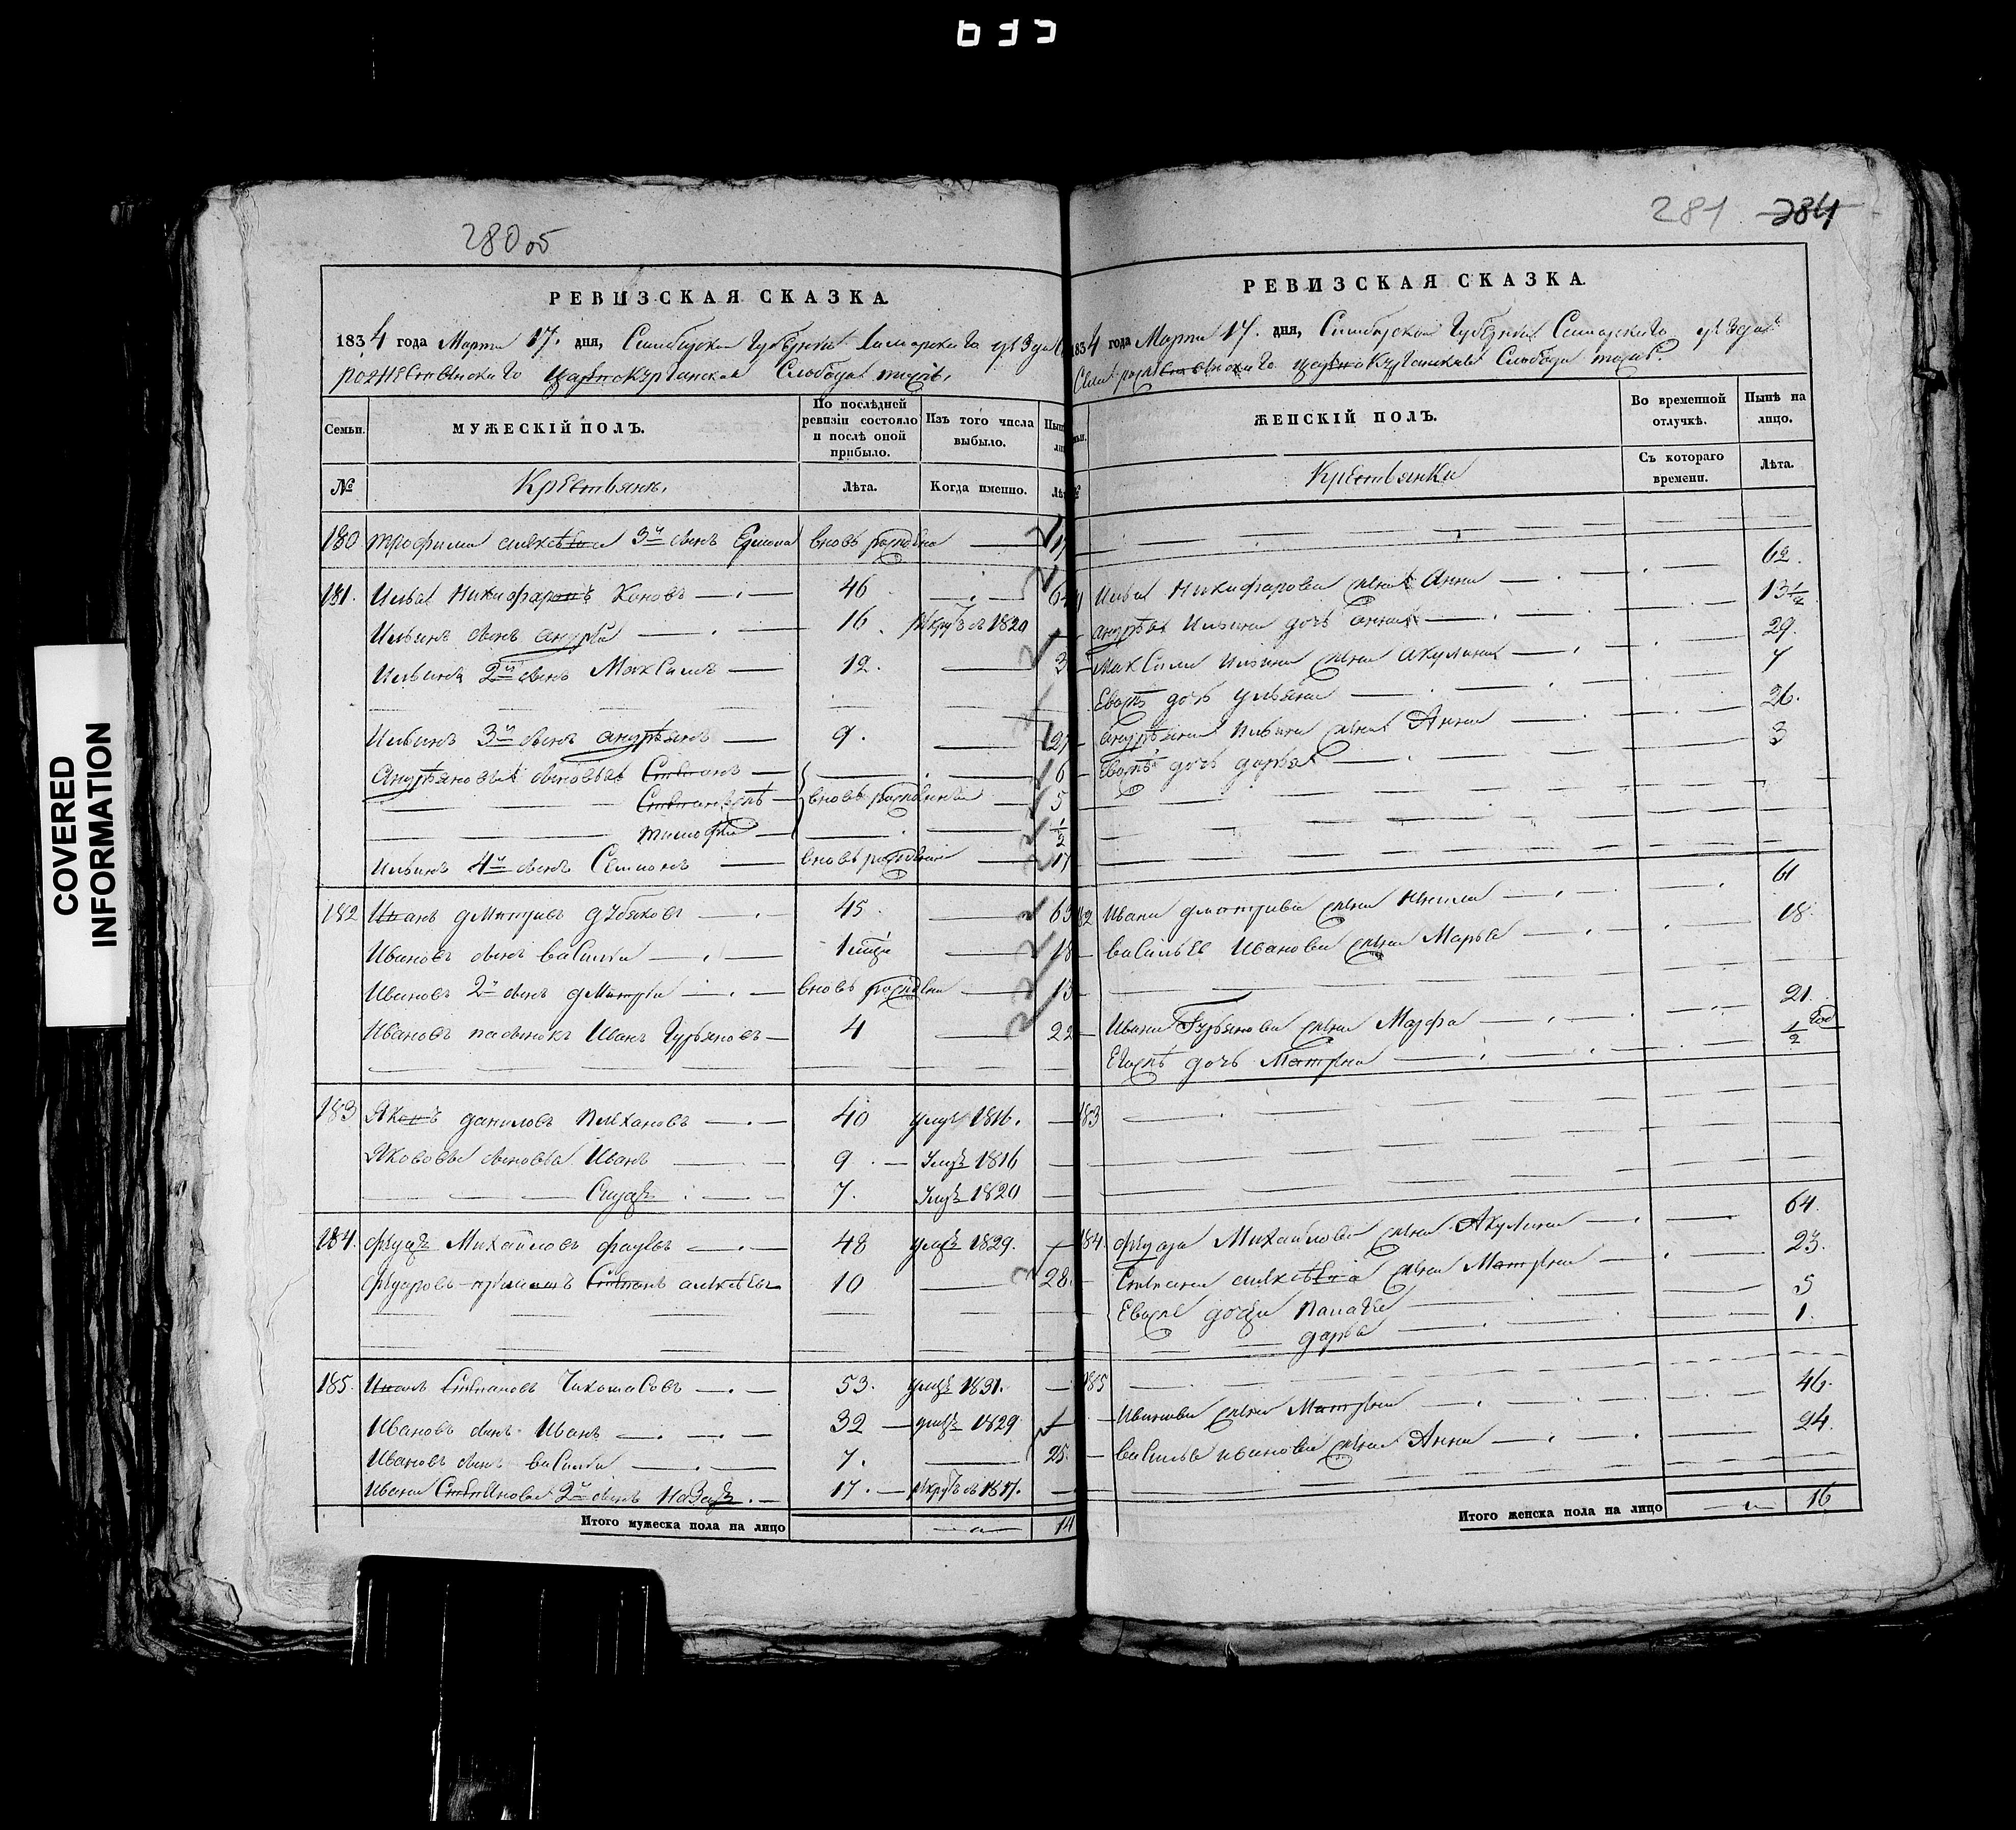 COVERED
INFORMATION
280 об
РЕВИЗСКАЯ СКАЗКА.
1834 года Марта 17. дня, Симбирской Губернiи Самарскаго уезда Села
рождественскаго царевокурганской Слобода тожъ,
Семьи.
МУЖЕСКIЙ ПОЛЪ.
По послѣдней ревизiи состояло и послѣ оной прибыло.
Изъ того числа выбыло.
№
Крестьяне.
Лѣта.
Когда именно.
180 трофима алексеева 3й сынъ Ермола вновь рожденъ 17
181. Илья Никифоровъ Коновъ 46 64
Ильинъ сынъ андрей 16 рекрутъ въ 1820
Ильина 2й сынъ Максимъ 12. 3
Ильинъ 3й сынъ андреянъ 9. 27
Андреяновы сыновья Степанъ 6
вновь рожденные 5
тимофей 1/2
Ильинъ 4й сынъ Семионъ вновь рожденъ 17
182 Иванъ дмитриевъ дубяковъ 45 63
Ивановъ сынъ василей 18
Ивановъ 2й сынъ дмитрей вновь рожденъ 13
Ивановъ пасынокъ Иванъ Гурьяновъ 4 22
183 Яковъ даниловъ Плехановъ 40 умръ 1816.
Яковова сыновья Иванъ 9 умръ 1816
Сидоръ 7. умръ 1820
184. Федоръ Михайловъ 48 умръ 1829.
Федоровъ приемышъ Степанъ алексеевъ 10 28.
185. Иванъ Степановъ Чикомасовъ 53. умръ 1831.
Ивановъ сынъ Иванъ 32 умръ 1829
Ивановъ сынъ василей 7. 25.
Ивана Степанова 2й сынъ Назаръ 17. рекрутъ въ 1817.
Итого мужеска пола на лицо 14
281 284
РЕВИЗСКАЯ СКАЗКА.
1834 года Марта 17. дня, Симбирской Губернiи Самарскаго уезда
Села рождественскаго царевокурганская Слобода тожъ.
ЖЕНСКIЙ ПОЛЪ.
Во временной отлучкѣ.
Нынѣ на лицо.
Крестьянки
Съ котораго времени.
Лѣта.
Ильи Никифорова жена Анна 62.
андрея Ильина дочь анна 13 1/2
Максима Ильина жена акулина 29.
Евожъ дочь ульяна 7
андреяна Ильина жена Анна 26.
Евожъ дочь дарья 3
182 Ивана дмитриева жена 61
василья Иванова жена Марья 18.
Ивана Гурьянова жена Марфа 21.
Евожъ дочь Матрена 1/2 год
183
184. федора Михайлова жена Акулина 64.
Степана алексеева жена Матрена 23.
Евоже дочери 5
дарья 1.
185
Иванова жена Матрена 46.
василья иванова жена Анна 24.
Итого женска пола на лицо 16